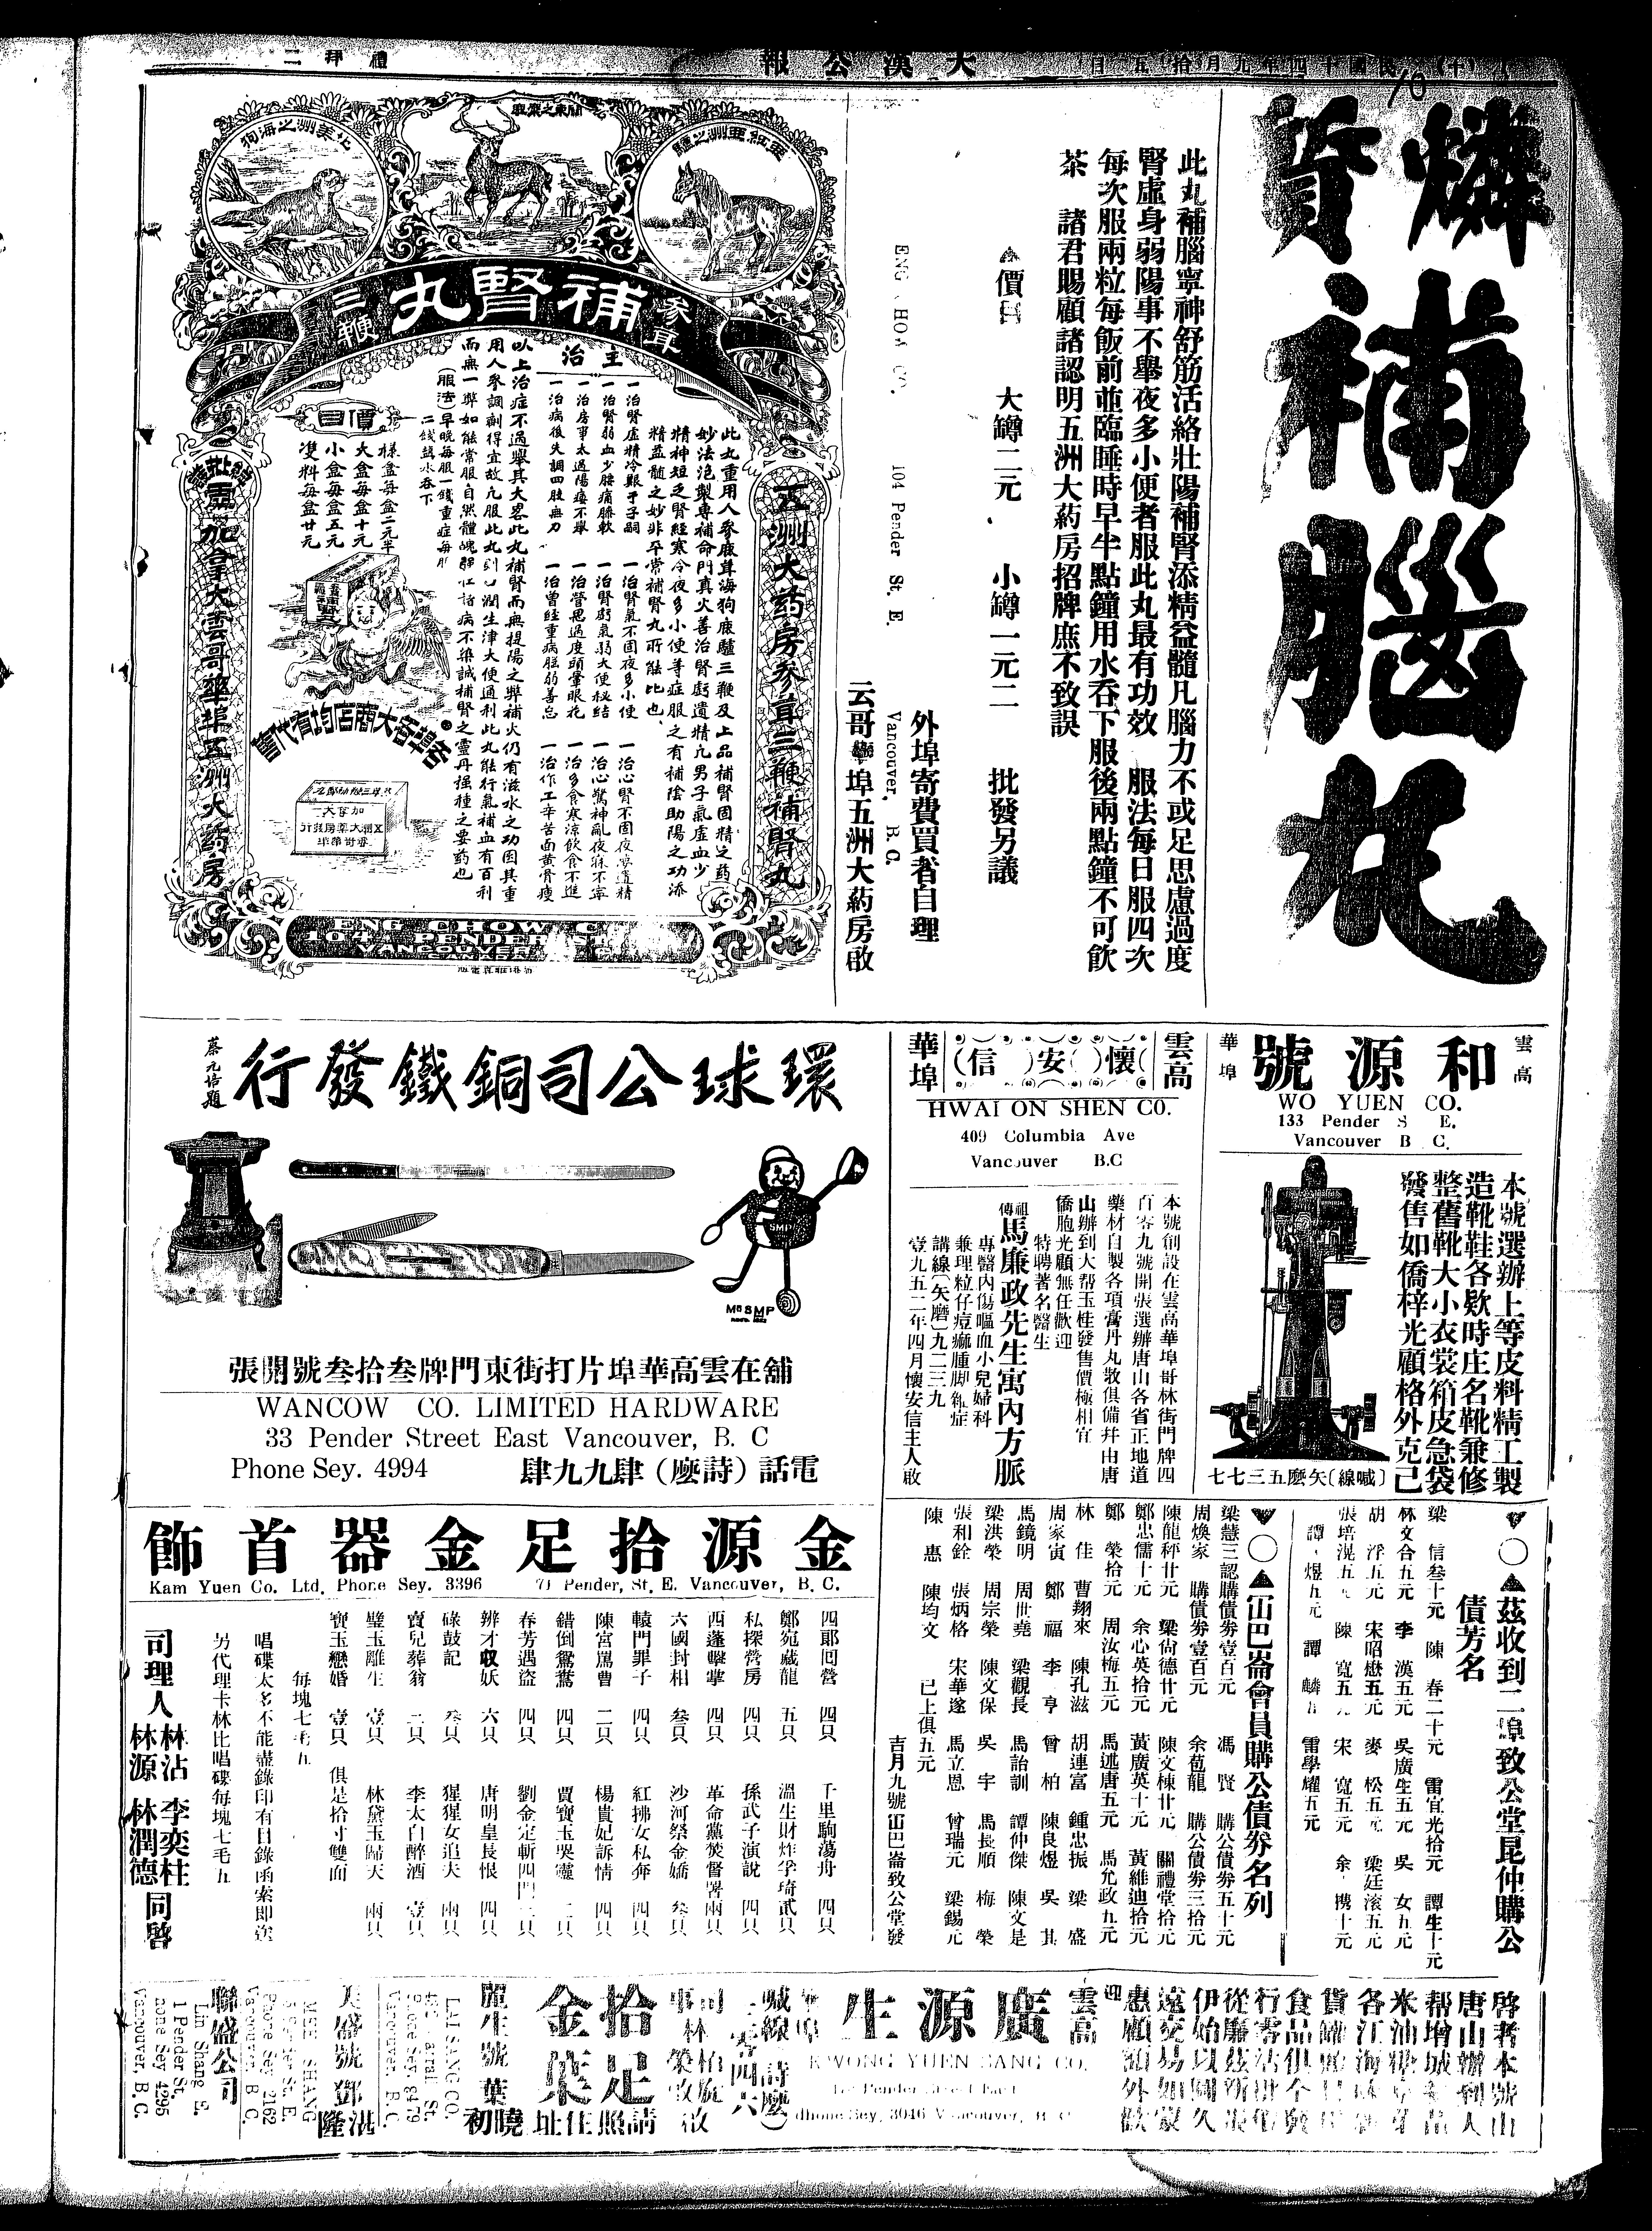 大漢公報
禮拜二
民國十四年九月拾五日
(十)
燐質補腦丸
此丸補腦寧神舒筋活絡壯陽補腎添精益髓凡腦力不或足思慮過度
腎虛身弱陽事不舉夜多小便者服此丸最有功效 服法每日服四次
每次服兩粒每飯前並臨睡時早半點鐘用水吞下服後兩點鐘不可飲
茶 諸君賜顧諸認明五洲大葯房招牌庶不致誤
▲價目 大罇二元 小罇一元二 批發另議
外埠寄費買者自理
104 Pender St. E.
Vancouver, B. C.
云哥華埠五洲大葯房啟
亞細亞洲之驢
關東之梅鹿
北美洲之海狗
參茸補腎丸三鞭
五洲大葯房參茸三鞭補腎丸
此丸重用人參鹿茸海狗鹿驢三鞭及上品補腎固精之葯
妙法泡製專補命門真火善治腎虧遺精凡男子氣虛血少
精神短乏腎經寒冷夜多小便等症服之有補陰助陽之功添
精益髓之妙非平常補腎丸所能比也
主治
一治腎虛精冷艱于子嗣 一治腎氣不固夜多小便 一治心腎不固夜夢遺精
一治腎弱血少腰痛膝軟 一治腎虧氣弱大便秘結 一治心驚神亂夜寐不寧
一治房事太過陽痿不舉 一治營思過度頭暈眼花 一治多食寒涼飲食不進
一治病後失調四肢無力 一治曾經重病胜弱善忘 一治作工辛苦面黄骨瘦
以上治症不過舉其大畧此丸補腎而無提陽之弊補火仍有滋水之功因其重
用人參調劑得宜故凡服此丸到口潤生津大便通利此丸能行氣補血有百利
而無一弊如能常服自然體魄強壯諸病不染誠補腎之靈丹强種之要葯也
(服法)早晚每服一錢重症每服
二錢鹽水吞下
價目
樣盒每盒二元半
大盒每盒十元
小盒每盒五元
雙料每盒廿元
各埠各大商店均有代售
總批發處加拿大雲哥華埠五洲大葯房
ENG CHOW C
104 PENDER ST
VANCOUVER
雲高華埠
和源號
WO YUEN CO.
133 Pender S E.
Vancouver B C.
本號選辦上等皮料精工製
造靴鞋各欵時庄名靴兼修
整舊靴大小衣裳箱皮急袋
發售如僑梓光顧格外克己
(喊線)矢麽五三七七
雲高華埠
(懷)(安)(信)
HWAI ON SHEN CO.
409 Columbia Ave
Vancouver B.C
本號創設在雲高華埠哥林街門牌四
百零九號開張選辦唐山各省正地道
藥材自製各項膏丹丸散俱備并由唐
山辦到大帮玉桂發售價極相宜
僑胞光顧無任歡迎
特聘著名醫生
祖傳馬廉政先生寓內方脈
專醫內傷嘔血小兒婦科
兼理粒仔痘癲腫脚紅症
講線(矢磨)九二三九
壹九五二年四月懷安信主人啟
環球公司銅鐵發行
蔡元培題
SMP
舖在雲高華埠片打街東門牌叁拾叁號開張
WANCOW CO. LIMITED HARDWARE
33 Pender Street East Vancouver, B. C
Phone Sey. 4994
電話(詩麽)肆九九肆
▼○▲茲收到二埠致公堂昆仲購公
債芳名
梁 信叁十元 陳 春二十元 雷宜光拾元 譚生十元
林文合五元 李 漢五元 吳廣生五元 吳 女五元
胡 浮五元 宋昭懋五元 麥 松五元 梁廷滚五元
張培滉五元 陳 寬五元 宋 寬五元 余 携十元
譚 煜五元 譚 麟五 雷學耀五元
▼○▲峝巴崙會員購公債券名列
梁慧三認購債券壹百元 馮 賢 購公債券五十元
周煥家 購債券壹百元 余苞龍 購公債券三拾元
陳龍秤廿元 梁尚德廿元 陳文棟廿元 關禮堂拾元
鄭忠儒十元 余心英拾元 黃廣英十元 黃維迪拾元
鄭 榮拾元 周汝梅五元 馬述唐五元 馬允政九元
林 佳 曹翔來 陳孔滋 胡連富 鍾忠振 梁 盛
周家寅 鄭 福 李 亨 曾 柏 陳良煜 吳 其
馬鏡明 周世堯 梁觀長 馬詒訓 譚仲傑 陳文是
梁洪榮 周宗榮 陳文保 吳 宇 馬長順 梅 榮
張和銓 張炳格 宋華遂 馬立恩 曾瑞元 梁錫元
陳 惠 陳均文 已上俱五元
吉月九號峝巴崙致公堂發
金源拾足金器首飾
Kam Yuen Co. Ltd. Phone Sey. 3396 71 Pender, St. E. Vancouver, B. C.
四郎回營 四只 千里駒蕩舟 四只
鄭宛藏龍 五只 溫生財炸孚琦貳只
私探營房 四只 孫武子演說 四只
西蓬擊掌 四只 革命黨焚督署兩只
六國封相 叁只 沙河祭金嬌 叁只
轅門罪子 四只 紅拂女私奔 四只
陳宮罵曹 二只 楊貴妃訴情 四只
錯倒鴛鴦 四只 賈寶玉哭靈 二只
春芳遇盜 四只 劉金定斬四門二只
辨才収妖 六只 唐明皇長恨 四只
碌鼓記 叁只 猩猩女追夫 兩只
賣兒葬翁 二只 李太白醉酒 壹只
璧玉離生 壹只 林黛玉歸天 兩只
寶玉戀婚 壹只 俱是拾寸雙面
每塊七毛五
唱碟太多不能盡錄印有目錄函索即送
另代理卡林比唱碟每塊七毛五
司理人 林沾 林源 李奕柱 林潤德 同啓
啓者本號由
雲高
廣源生
KWONG YUEN SANG CO.
Phone Sey. 3046 Vancouver,
喊線(詩麽)三零四六
拾足金葉
請照住址
麗生號葉曉初
LAI SANG CO.
Phone Sey. 8479
Vancouver, B. C.
美盛號鄧湛隆
MEE SHANG
Phone Sey 2162
Vancouver B. C.
聯盛公司
Lin Shang E.
1 Pender St,
Phone Sey 4295
Vancouver, B. C.